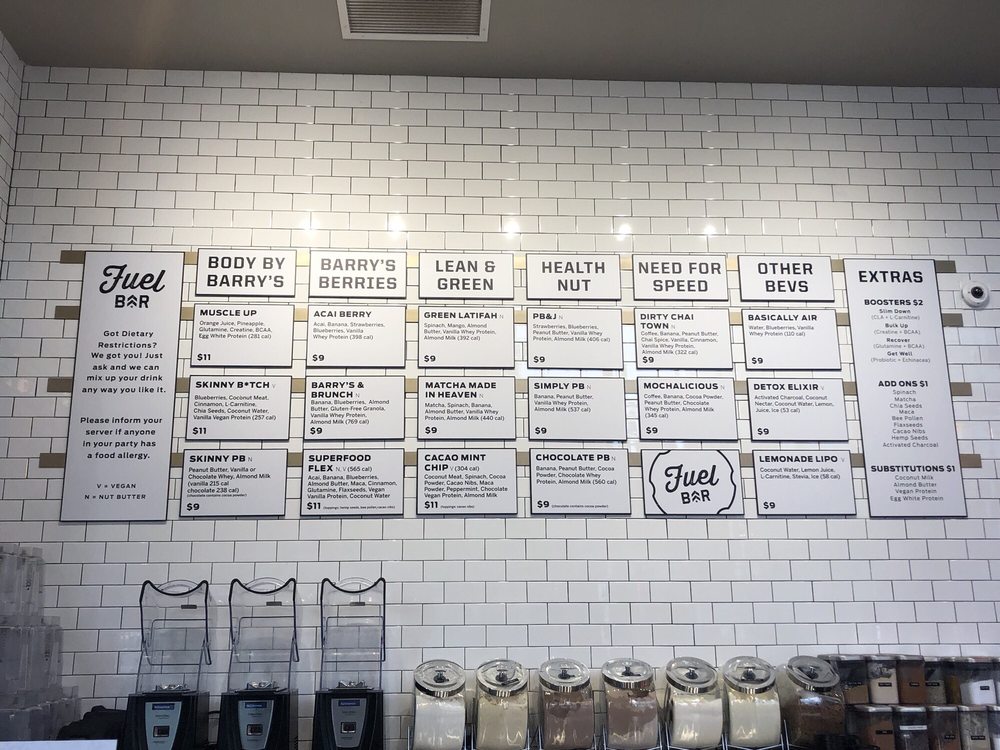 Fuel
BAR
Got Dietary
Restrictions?
We got you! Just
ask and we can
mix up your drink
any way you like it.
Please inform your
server if anyone
in your party has
a food allergy.
V = VEGAN
N = NUT BUTTER
BODY BY
BARRY'S
MUSCLE UP
Orange Juice, Pineapple,
Glutamine, Creatine, BCAA,
Egg White Protein (281 cal)
$11
SKINNY B*TCH V
Blueberries, Coconut Meat,
Cinnamon, L-Carnitine,
Chia Seeds, Coconut Water,
Vanilla Vegan Protein (257 cal)
$11
SKINNY PB N
Peanut Butter, Vanilla or
Chocolate Whey, Almond Milk
(vanilla 215 cal
chocolate 238 cal)
(chocolate contains cocoa powder)
$9
BARRY'S
BERRIES
ACAI BERRY
Acai, Banana, Strawberries,
Blueberries, Vanilla
Whey Protein (398 cal)
$9
BARRY'S &
BRUNCH N
Banana, Blueberries, Almond
Butter, Gluten-Free Granola,
Vanilla Whey Protein,
Almond Milk (769 cal)
$9
SUPERFOOD
FLEX N, V (565 cal)
Acai, Banana, Blueberries,
Almond Butter, Maca, Cinnamon,
Glutamine, Flaxseeds, Vegan
Vanilla Protein, Coconut Water
$11 (toppings: hemp seeds, bee pollen, cacao nibs)
LEAN &
GREEN
GREEN LATIFAH N
Spinach, Mango, Almond
Butter, Vanilla Whey Protein,
Almond Milk (392 cal)
$9
MATCHA MADE
IN HEAVEN N
Matcha, Spinach, Banana,
Almond Butter, Vanilla Whey
Protein, Almond Milk (440 cal)
$9
CACAO MINT
CHIP V (304 cal)
Coconut Meat, Spinach, Cocoa
Powder, Cacao Nibs, Maca
Powder, Peppermint, Chocolate
Vegan Protein, Almond Milk
$11 (toppings: cacao nibs)
HEALTH
NUT
PB&J N
Strawberries, Blueberries,
Peanut Butter, Vanilla Whey
Protein, Almond Milk (406 cal)
$9
SIMPLY PB N
Banana, Peanut Butter,
Vanilla Whey Protein,
Almond Milk (537 cal)
$9
CHOCOLATE PB N
Banana, Peanut Butter, Cocoa
Powder, Chocolate Whey
Protein, Almond Milk (560 cal)
$9 (chocolate contains cocoa powder)
NEED FOR
SPEED
DIRTY CHAI
TOWN N
Coffee, Banana, Peanut Butter,
Chai Spice, Vanilla, Cinnamon,
Vanilla Whey Protein,
Almond Milk (322 cal)
$9
MOCHALICIOUS N
Coffee, Banana, Cocoa Powder,
Peanut Butter, Chocolate
Whey Protein, Almond Milk
(345 cal)
$9
Fuel
BAR
OTHER
BEVS
BASICALLY AIR
Water, Blueberries, Vanilla
Whey Protein (110 cal)
$9
DETOX ELIXIR V
Activated Charcoal, Coconut
Nectar, Coconut Water, Lemon,
Juice, Ice (53 cal)
$9
LEMONADE LIPO V
Coconut Water, Lemon Juice,
L-Carnitine, Stevia, Ice (58 cal)
$9
EXTRAS
BOOSTERS $2
Slim Down
(CLA + L-Carnitine)
Bulk Up
(Creatine + BCAA)
Recover
(Glutamine + BCAA)
Get Well
(Probiotic + Echinacea)
ADD ONS $1
Spinach
Matcha
Chia Seeds
Maca
Bee Pollen
Flaxseeds
Cacao Nibs
Hemp Seeds
Activated Charcoal
SUBSTITUTIONS $1
Coconut Milk
Almond Butter
Vegan Protein
Egg White Protein